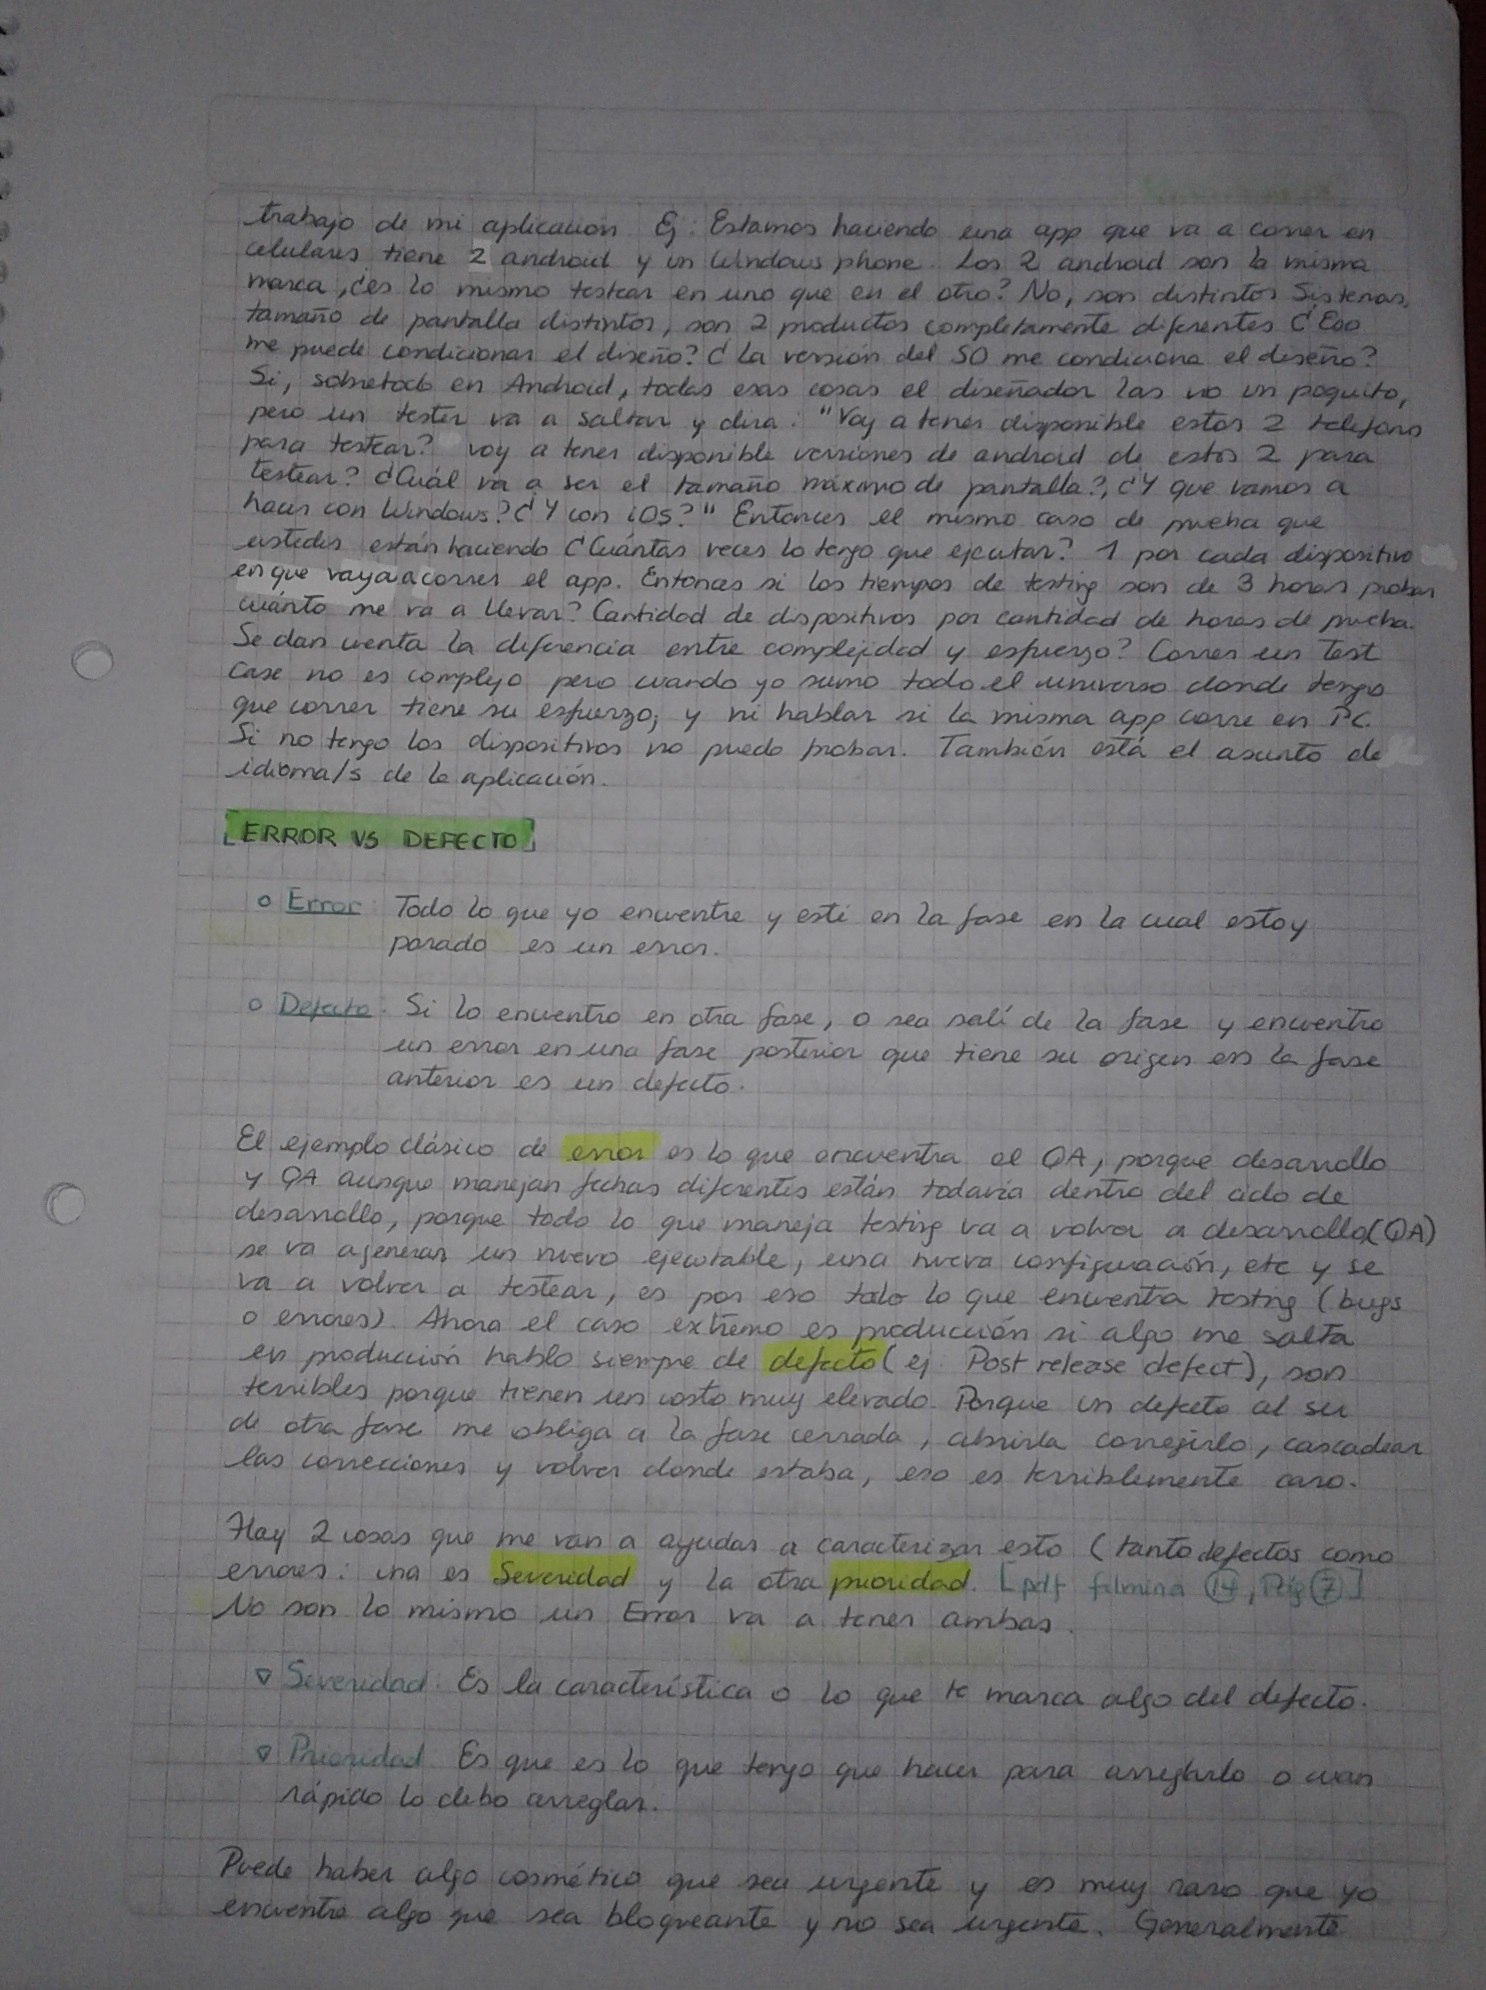 trabajo de mi aplicación Ej: Estamos haciendo una app que va a correr en
celulares tiene 2 android y un Windows phone. Los 2 android son la misma
marca, ¿es lo mismo testear en uno que en el otro? No, son distintos Sistemas,
tamaño de pantalla distintos, son 2 productos completamente diferentes ¿Eso
me puede condicionar el diseño? ¿La versión del SO me condiciona el diseño?
Si, sobretodo en Android, todas esas cosas el diseñador las vio un poquito,
pero un tester va a saltar y dira: "Voy a tener disponible estos 2 telefono
para testear? voy a tener disponible versiones de android de estos 2 para
testear? ¿Cuál va a ser el tamaño máximo de pantalla?, ¿Y que vamos a
hacer con Windows? ¿Y con iOS?" Entonces el mismo caso de prueba que
ustedes están haciendo ¿Cuántas veces lo tengo que ejecutar? 1 por cada dispositivo
en que vaya a correr el app. Entonces si los tiempos de testing son de 3 horas probar
cuánto me va a llevar? Cantidad de dispositivos por cantidad de horas de prueba.
Se dan cuenta la diferencia entre complejidad y esfuerzo? Correr un Test
Case no es complejo pero cuando yo sumo todo el universo donde tengo
que correr tiene su esfuerzo, y ni hablar si la misma app corre en PC.
Si no tengo los dispositivos no puedo probar. También está el asunto de
idioma/s de la aplicación.
[ERROR VS DEFECTO]
o Error: Todo lo que yo encuentre y esté en la fase en la cual estoy
parado es un error.
o Defecto: Si lo encuentro en otra fase, o sea salí de la fase y encuentro
un error en una fase posterior que tiene su origen en la fase
anterior es un defecto.
El ejemplo clásico de error es lo que encuentra el QA, porque desarrollo
y QA aunque manejan fechas diferentes están todavía dentro del ciclo de
desarrollo, porque todo lo que maneja testing va a volver a desarrollo (QA)
se va a generar un nuevo ejecutable, una nueva configuración, etc y se
va a volver a testear, es por eso todo lo que encuentra testing (bugs
o errores). Ahora el caso extremo es producción si algo me salta
en producción hablo siempre de defecto (ej. Post release defect), son
terribles porque tienen un costo muy elevado. Porque un defecto al ser
de otra fase me obliga a la fase cerrada, abrirla corregirlo, cascadear
las correcciones y volver donde estaba, eso es terriblemente caro.
Hay 2 cosas que me van a ayudar a caracterizar esto (tanto defectos como
errores: una es Severidad y la otra prioridad. [pdf filmina 14, Pág 7]
No son lo mismo un Error va a tener ambas.
▽ Severidad: Es la característica o lo que te marca algo del defecto.
▽ Prioridad: Es que es lo que tengo que hacer para arreglarlo o cuan
rápido lo debo arreglar.
Puede haber algo cosmético que sea urgente y es muy raro que yo
encuentre algo que sea bloqueante y no sea urgente. Generalmente